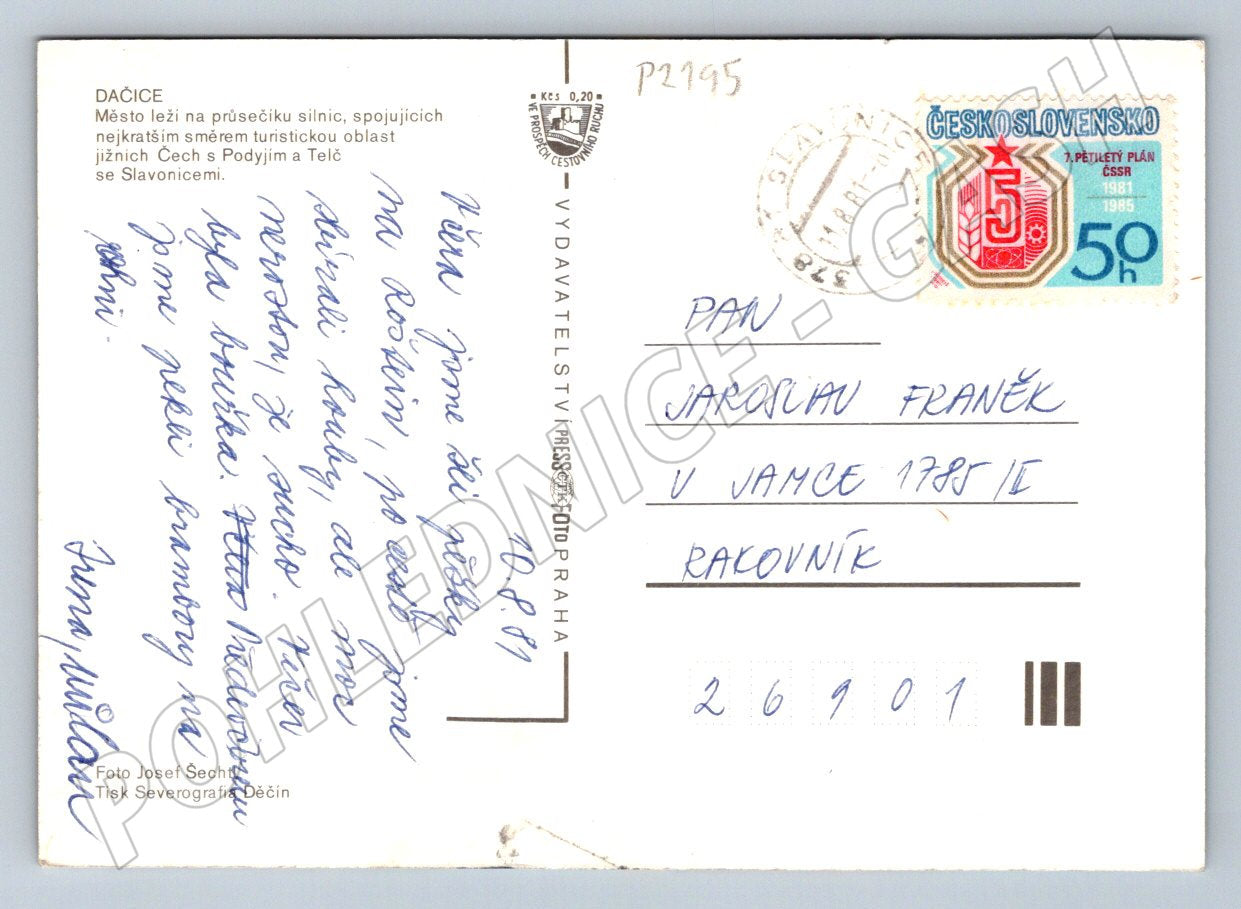 DAČICE
Město leží na průsečíku silnic, spojujících
nejkratším směrem turistickou oblast
jižních Čech s Podyjím a Telč
se Slavonicemi.
Kčs 0,20
VE PROSPĚCH CESTOVNÍHO RUCHU
P2195
ČESKOSLOVENSKO
7. PĚTILETÝ PLÁN
ČSSR
1981
1985
5
50
h
378 SLAVONICE
8.81
VYDAVATELSTVÍ PRESSFOTO PRAHA
10.8.81
Včera jsme šli pěšky
na Roštein, po cestě jsme
sbírali houby, ale moc
nerostou, je sucho. Večer
byla bouřka. Předevčírem
jsme pekli brambory na
ohni.
Irena, Milan
PAN
JAROSLAV FRANĚK
V JAMCE 1785/II
RAKOVNÍK
26901
Foto Josef Šechtl
Tisk Severografia Děčín
POHLEDNICE-CZ.CH